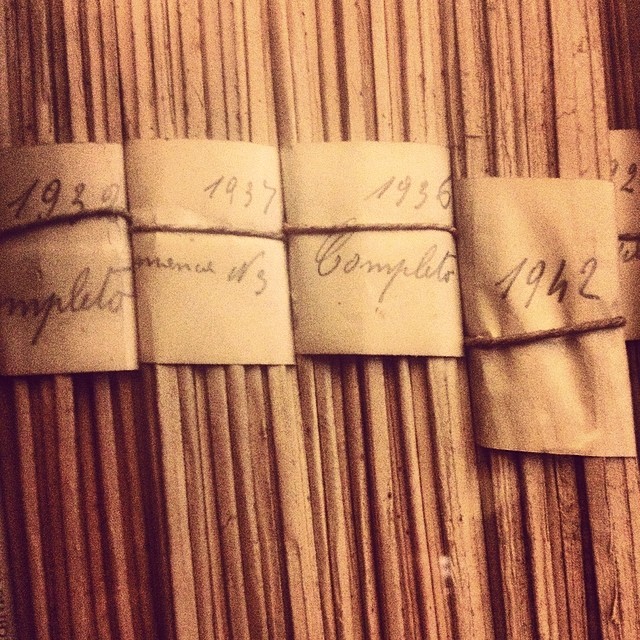 1939
mpleto
1937
mence Nº3
1936
Completo
1942